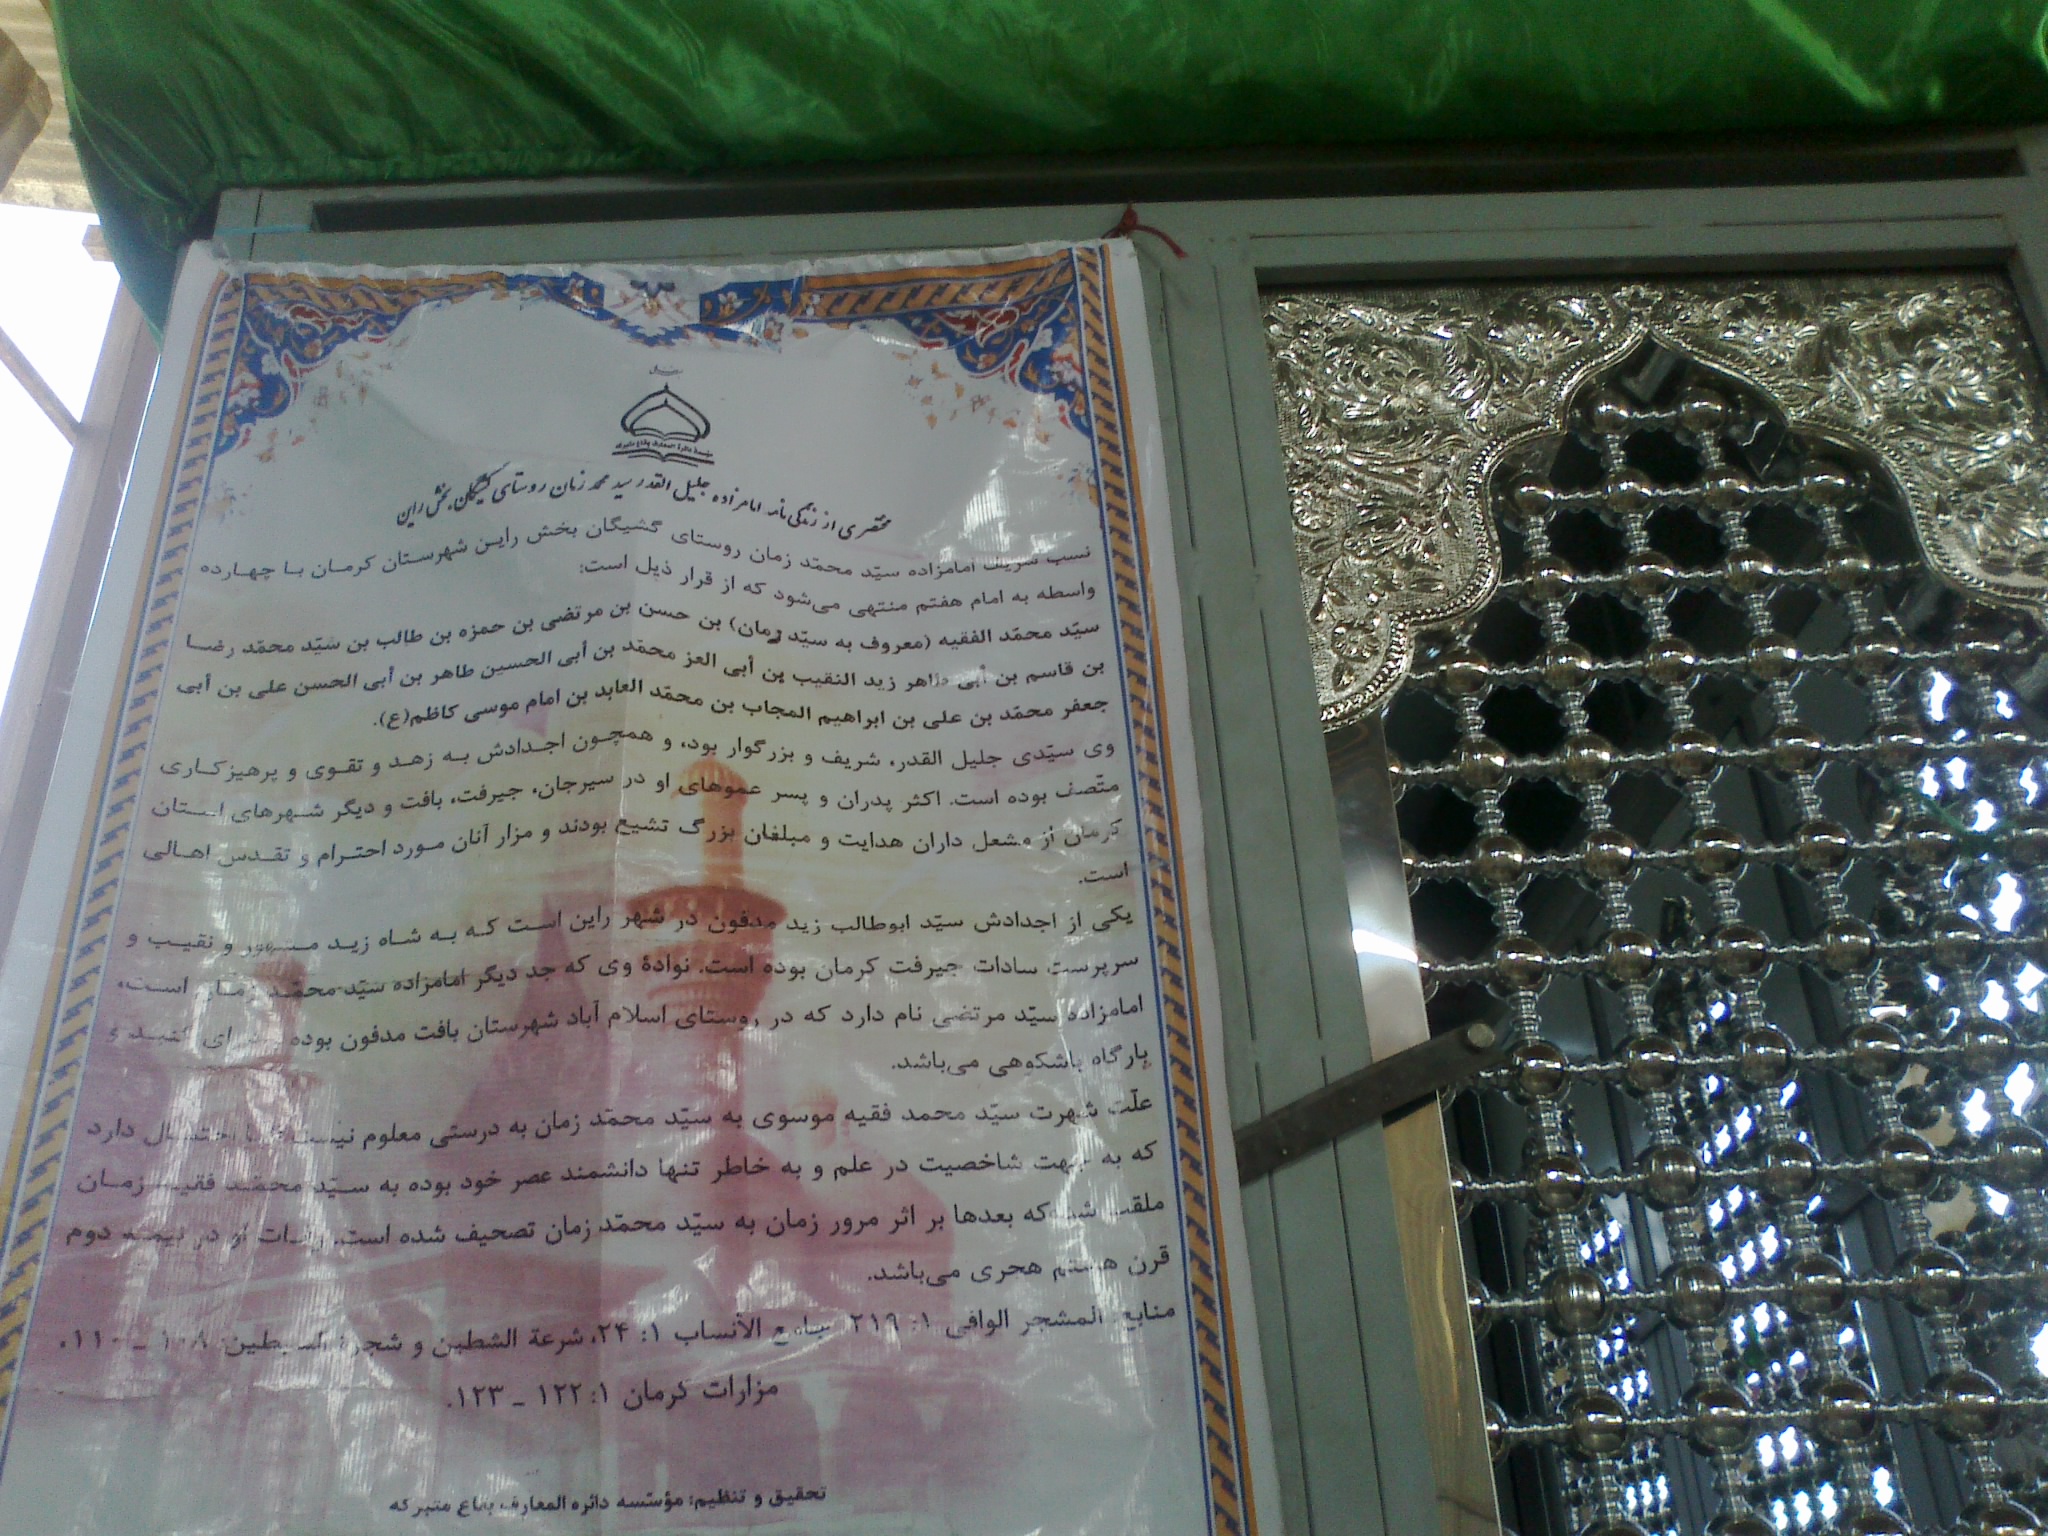 مؤسسهٔ دائرة المعارف بقاع متبرکه
مختصری از زندگی نامه امامزاده جلیل القدر سید محمد زمان روستای گشیگان بخش راین
نسب شریف امامزاده سیّد محمّد زمان روستای گشیگان بخش راین شهرستان کرمان با چهارده
واسطه به امام هفتم منتهی می‌شود که از قرار ذیل است:
سیّد محمّد الفقیه (معروف به سیّد زمان) بن حسن بن مرتضی بن حمزه بن طالب بن سیّد محمّد رضا
بن قاسم بن أبی طاهر زید النقیب بن أبی العز محمّد بن أبی الحسین طاهر بن أبی الحسن علی بن أبی
جعفر محمّد بن علی بن ابراهیم المجاب بن محمّد العابد بن امام موسی کاظم(ع).
وی سیّدی جلیل القدر، شریف و بزرگوار بود، و همچون اجدادش به زهد و تقوی و پرهیزکاری
متّصف بوده است. اکثر پدران و پسر عموهای او در سیرجان، جیرفت، بافت و دیگر شهرهای استان
کرمان از مشعل داران هدایت و مبلغان بزرگ تشیع بودند و مزار آنان مورد احترام و تقدس اهالی
است.
یکی از اجدادش سیّد ابوطالب زید مدفون در شهر راین است که به شاه زید مشهور و نقیب و
سرپرست سادات جیرفت کرمان بوده است. نوادهٔ وی که جد دیگر امامزاده سیّد محمّد زمان است،
امامزاده سیّد مرتضی نام دارد که در روستای اسلام آباد شهرستان بافت مدفون بوده گنبد و
بارگاه باشکوهی می‌باشد.
علّت شهرت سیّد محمد فقیه موسوی به سیّد محمّد زمان به درستی معلوم نیست احتمال دارد
که به جهت شاخصیت در علم و به خاطر تنها دانشمند عصر خود بوده به سیّد محمّد فقیه زمان
ملقب شده که بعدها بر اثر مرور زمان به سیّد محمّد زمان تصحیف شده است. وفات او در نیمه دوم
قرن هشتم هجری می‌باشد.
منابع: المشجر الوافی ۱: ۲۱۹، جامع الأنساب ۱: ۲۴، شرعة الشطبن و شجرة السبطین: ۱۰۸ ـ ۱۱۰،
مزارات کرمان ۱: ۱۲۲ ـ ۱۲۳.
تحقیق و تنظیم: مؤسّسه دائره المعارف بقاع متبرکه